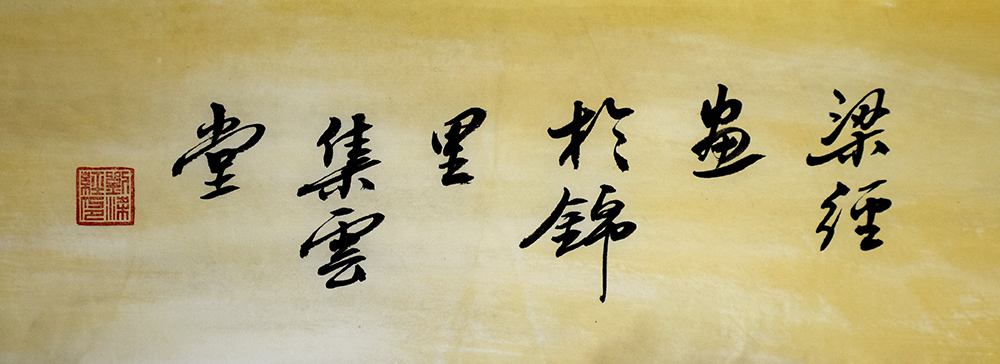 梁經
畫
於錦
里
集雲
堂